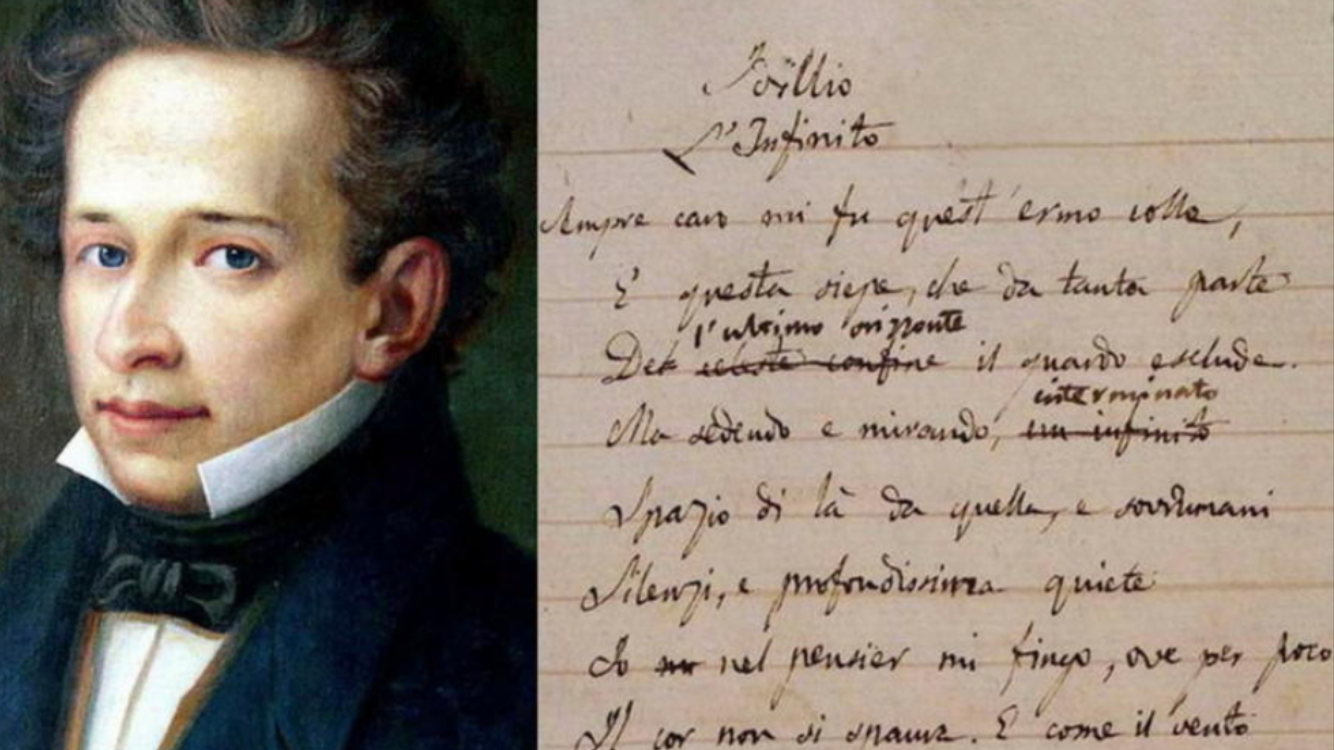 Idillio
L'Infinito
Sempre caro mi fu quest'ermo colle,
E questa siepe, che da tanta parte
l'ultimo orizzonte
Del celeste confine il guardo esclude.
interminato
Ma sedendo e mirando, un infinito
Spazio di là da quella, e sovrumani
Silenzi, e profondissima quiete
Io nel pensier mi fingo, ove per poco
Il cor non si spaura. E come il vento